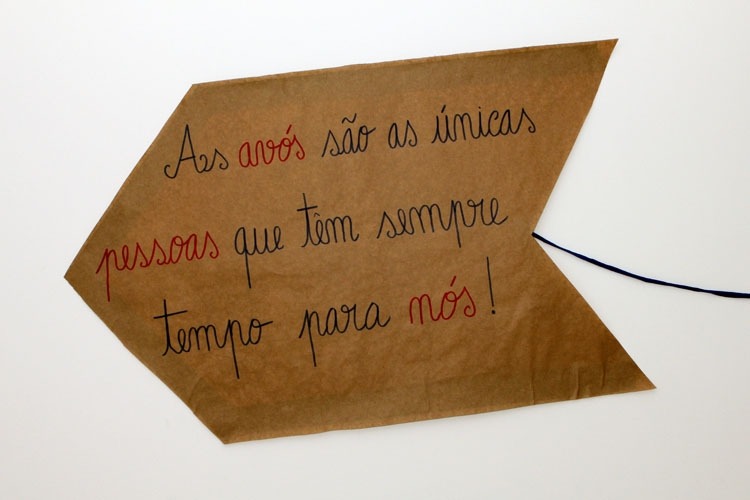 As avós são as únicas
pessoas que têm sempre
tempo para nós!